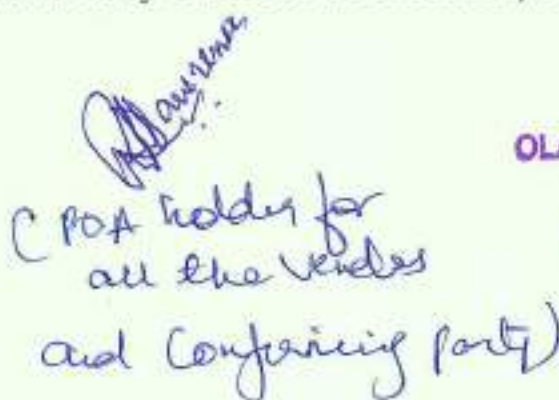 OLA
(POA holder for
all the Vendors
and Confirming party)